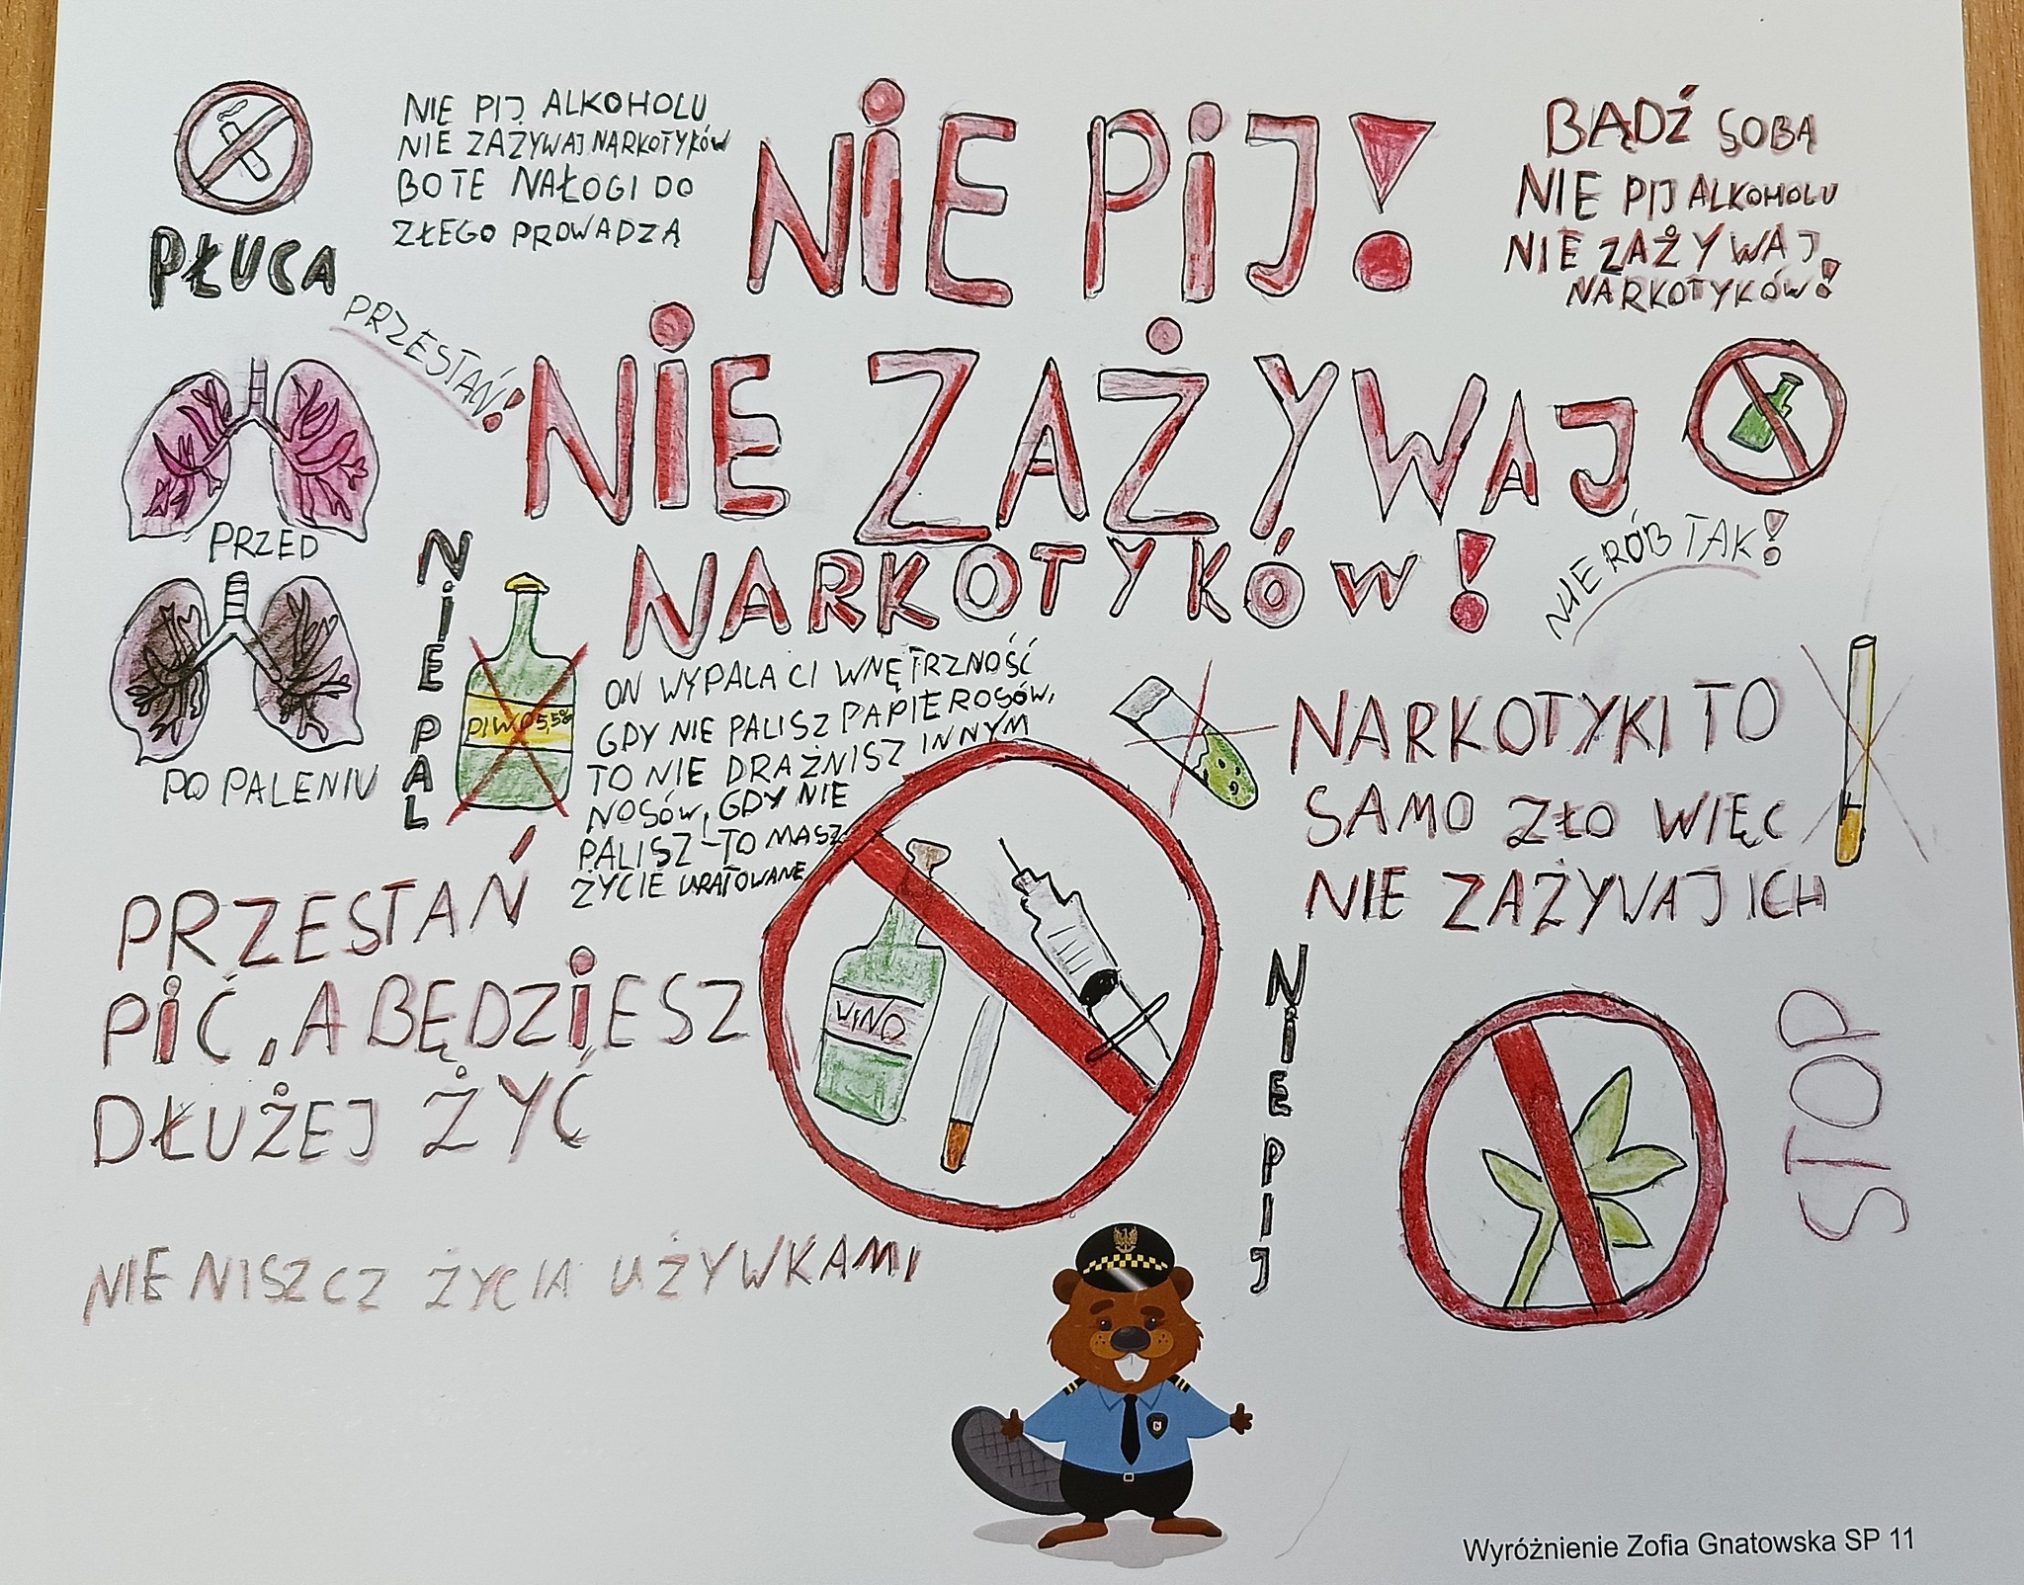 NIE PIJ ALKOHOLU
NIE ZAŻYWAJ NARKOTYKÓW
BO TE NAŁOGI DO
ZŁEGO PROWADZĄ
NiE PiJ!
BĄDŹ SOBĄ
NIE PIJ ALKOHOLU
NIE ZAŻYWAJ
NARKOTYKÓW!
PŁUCA
PRZESTAŃ!
NiE ZAŻYWAJ
NARKOTYKÓW!
NIE RÓB TAK!
PRZED
PO PALENIU
NiE PAL
PIWO 5,5%
ON WYPALA CI WNĘTRZNOŚĆ
GDY NIE PALISZ PAPIEROSÓW,
TO NIE DRAŻNISZ INNYM
NOSÓW, GDY NIE
PALISZ - TO MASZ
ŻYCIE URATOWANE
NARKOTYKI TO
SAMO ZŁO WIĘC
NIE ZAŻYWAJ ICH
PRZESTAŃ
PiĆ, A BĘDZiESZ
DŁUŻEJ ŻYĆ
WINO
NiE PIJ
STOP
NIE NISZCZ ŻYCIA UŻYWKAMI
Wyróżnienie Zofia Gnatowska SP 11